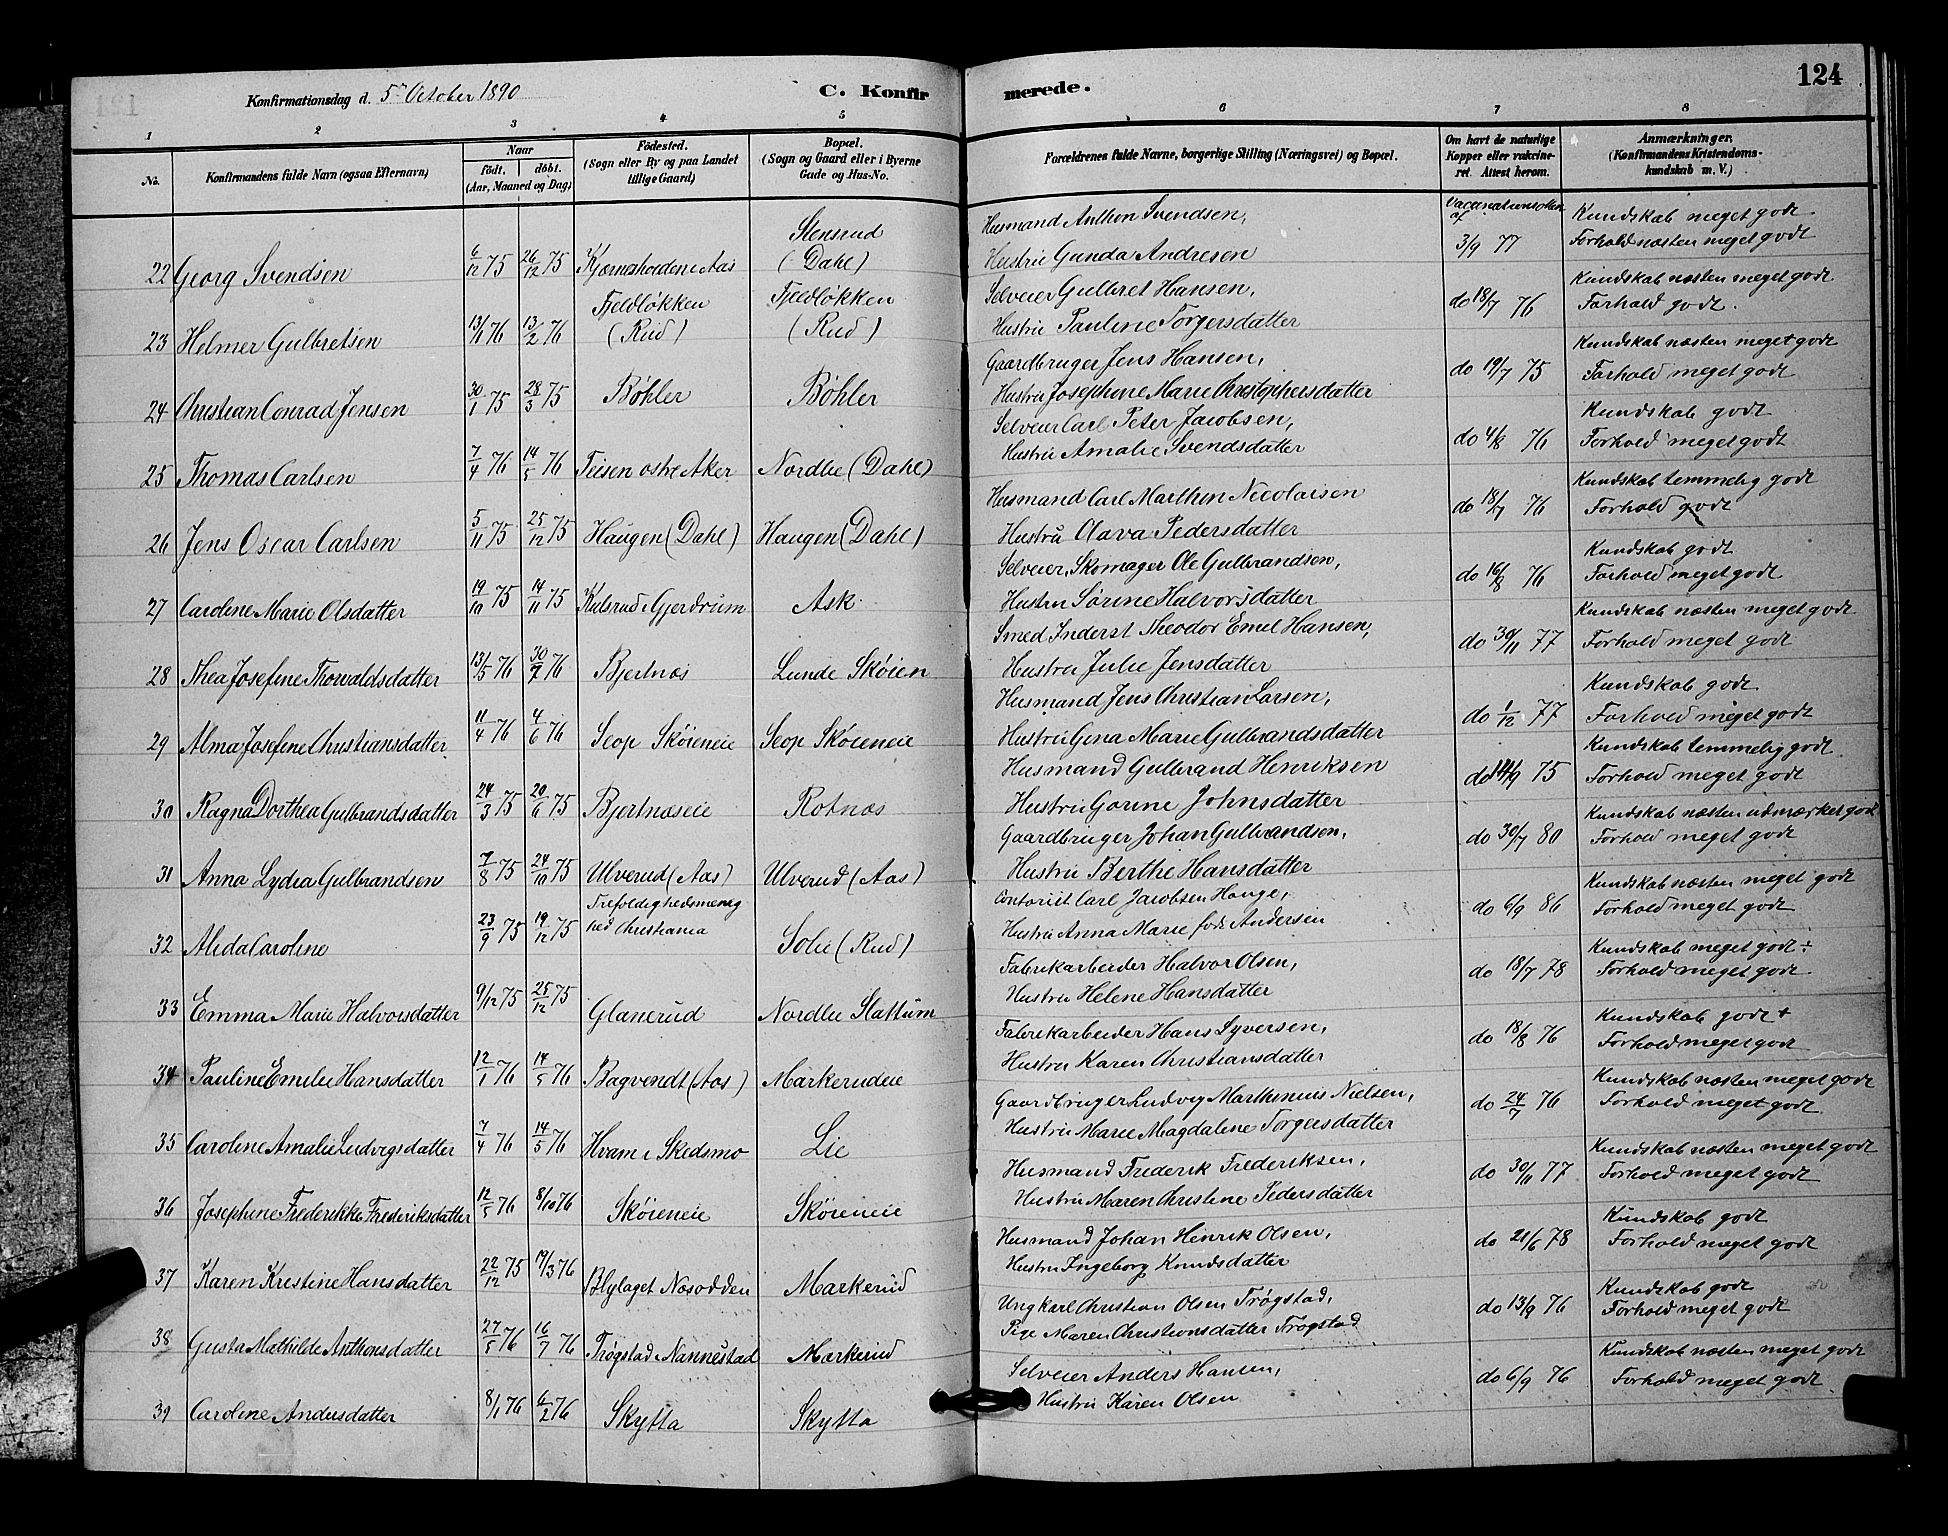 Konfirmationsdag d. 5te October 1890
C. Konfir
merede.
124
1 2 3 4 5 6 7 8
No.
Konfirmandens fulde Navn (ogsaa Efternavn)
Naar
født. døbt.
(Aar, Maaned og Dag)
Fødested.
(Sogn eller By og paa Landet
tillige Gaard)
Bopæl.
(Sogn og Gaard eller i Byerne
Gade og Hus-No.
Forældrenes fulde Navne, borgerlige Stilling (Næringsvei) og Bopæl.
Om havt de naturlige
Kopper eller vakcine-
ret. Attest herom.
Anmærkninger.
(Konfirmandens Kristendoms-
kundskab m. V.)
22 Georg Svendsen 6/12 75 26/12 75 Kjernsholdene Aas Stensrud (Dahl)
Husmand Anthon Svendsen,
Hustru Gunda Andresen
af 3/9 77
Kundskab meget godt
Forhold næsten meget godt
23 Helmer Gulbretsen 13/1 76 13/2 76 Fjeldløkken (Rud) Fjeldløkken (Rud)
Selveier Gulbret Hansen,
Hustru Pauline Torgersdatter
do 18/7 76
Kundskab næsten meget godt
Forhold godt.
24 Christian Conrad Jensen 30/1 75 28/3 75 Bøhler Bøhler
Gaardbruger Jens Hansen,
Hustru Josephine Marie Christophersdatter
do 19/7 75
Kundskab næsten meget godt
Forhold meget godt
25 Thomas Carlsen 7/4 76 14/5 76 Teisen østre Aker Nordlie (Dahl)
Selveier Carl Peter Jacobsen,
Hustru Amalie Svendsdatter
do 4/8 76
Kundskab godt
Forhold meget godt
26 Jens Oscar Carlsen 5/11 75 25/12 75 Haugen (Dahl) Haugen (Dahl)
Husmand Carl Marthin Nicolaisen
Hustru Olava Pedersdatter
do 18/7 76
Kundskab temmelig godt
Forhold godt
27 Caroline Marie Olsdatter 19/10 75 14/11 75 Kulsrud i Gjerdrum Ask
Selveier, Skomager Ole Gulbrandsen,
Hustru Sørine Halvorsdatter
do 16/8 76
Kundskab godt
Forhold meget godt
28 Thea Josefine Thorvaldsdatter 13/5 76 30/7 76 Bjertnæs Lunde Skøien
Smed Inderst Theodor Emil Hansen,
Hustru Julie Jensdatter
do 30/11 77
Kundskab næsten meget godt
Forhold meget godt
29 Alma Josefine Christiansdatter 11/4 76 4/6 76 Seop Skøieneie Seop Skøieneie
Husmand Jens Christian Larsen,
Hustru Gina Marie Gulbrandsdatter
do 1/12 77
Kundskab godt
Forhold meget godt
30 Ragna Dorthea Gulbrandsdatter 24/3 75 20/6 75 Bjertnæseie Rotnæs
Husmand Gulbrand Henriksen
Hustru Gorine Johnsdatter
do 14/9 75
Kundskab temmelig godt
Forhold meget godt
31 Anna Lydia Gulbrandsen 7/8 75 24/10 75 Ulverud (Aas) Ulverud (Aas)
Gaardbruger Johan Gulbrandsen,
Hustru Berthe Hansdatter
do 30/7 80
Kundskab næsten udmærket godt
Forhold meget godt
32 Alida Caroline 23/9 75 19/12 75 Trefoldighedsmenig
hed Christiania Solie (Rud)
Contorist Carl Jacobsen Hauge,
Hustru Anna Marie født Andersen
do 6/9 86
Kundskab næsten meget godt
Forhold meget godt
33 Emma Marie Halvorsdatter 9/12 75 25/12 75 Glanerud Nordlie Slattum
Fabrikarbeider Halvor Olsen,
Hustru Helene Hansdatter
do 18/7 78
Kundskab meget godt ÷
Forhold meget godt
34 Pauline Emilie Hansdatter 12/1 76 14/5 76 Bagvendt (Aas) Markerudeie
Fabrikarbeider Hans Syversen,
Hustru Karen Christiansdatter
do 18/8 76
Kundskab godt +
Forhold meget godt
35 Caroline Amalie Ludvigsdatter 7/4 76 14/5 76 Hvam i Skedsmo Lie
Gaardbruger Ludvig Marthinius Nielsen,
Hustru Marie Magdalene Torgersdatter
do 24/7 76
Kundskab næsten meget godt
Forhold meget godt
36 Josephine Frederikke Frederiksdatter 12/5 76 8/10 76 Skøieneie Skøieneie
Husmand Frederik Frederiksen,
Hustru Maren Christine Pedersdatter
do 30/11 77
Kundskab næsten meget godt
Forhold meget godt
37 Karen Kristine Hansdatter 22/12 75 19/3 76 Blylaget Næsodden Markerud
Husmand Johan Henrik Olsen,
Hustru Ingeborg Knudsdatter
do 21/6 78
Kundskab godt
Forhold meget godt
38 Gusta Mathilde Anthonsdatter 27/5 76 16/7 76 Trøgstad i Nannestad Markerud
Ungkarl Christian Olsen Trøgstad,
Pige Maren Christiansdatter Trøgstad
do 13/9 76
Kundskab godt
Forhold meget godt
39 Caroline Andersdatter 8/1 76 6/2 76 Skytta Skytta
Selveier Anders Hansen,
Hustru Karen Olsen
do 6/9 76
Kundskab næsten meget godt
Forhold meget godt